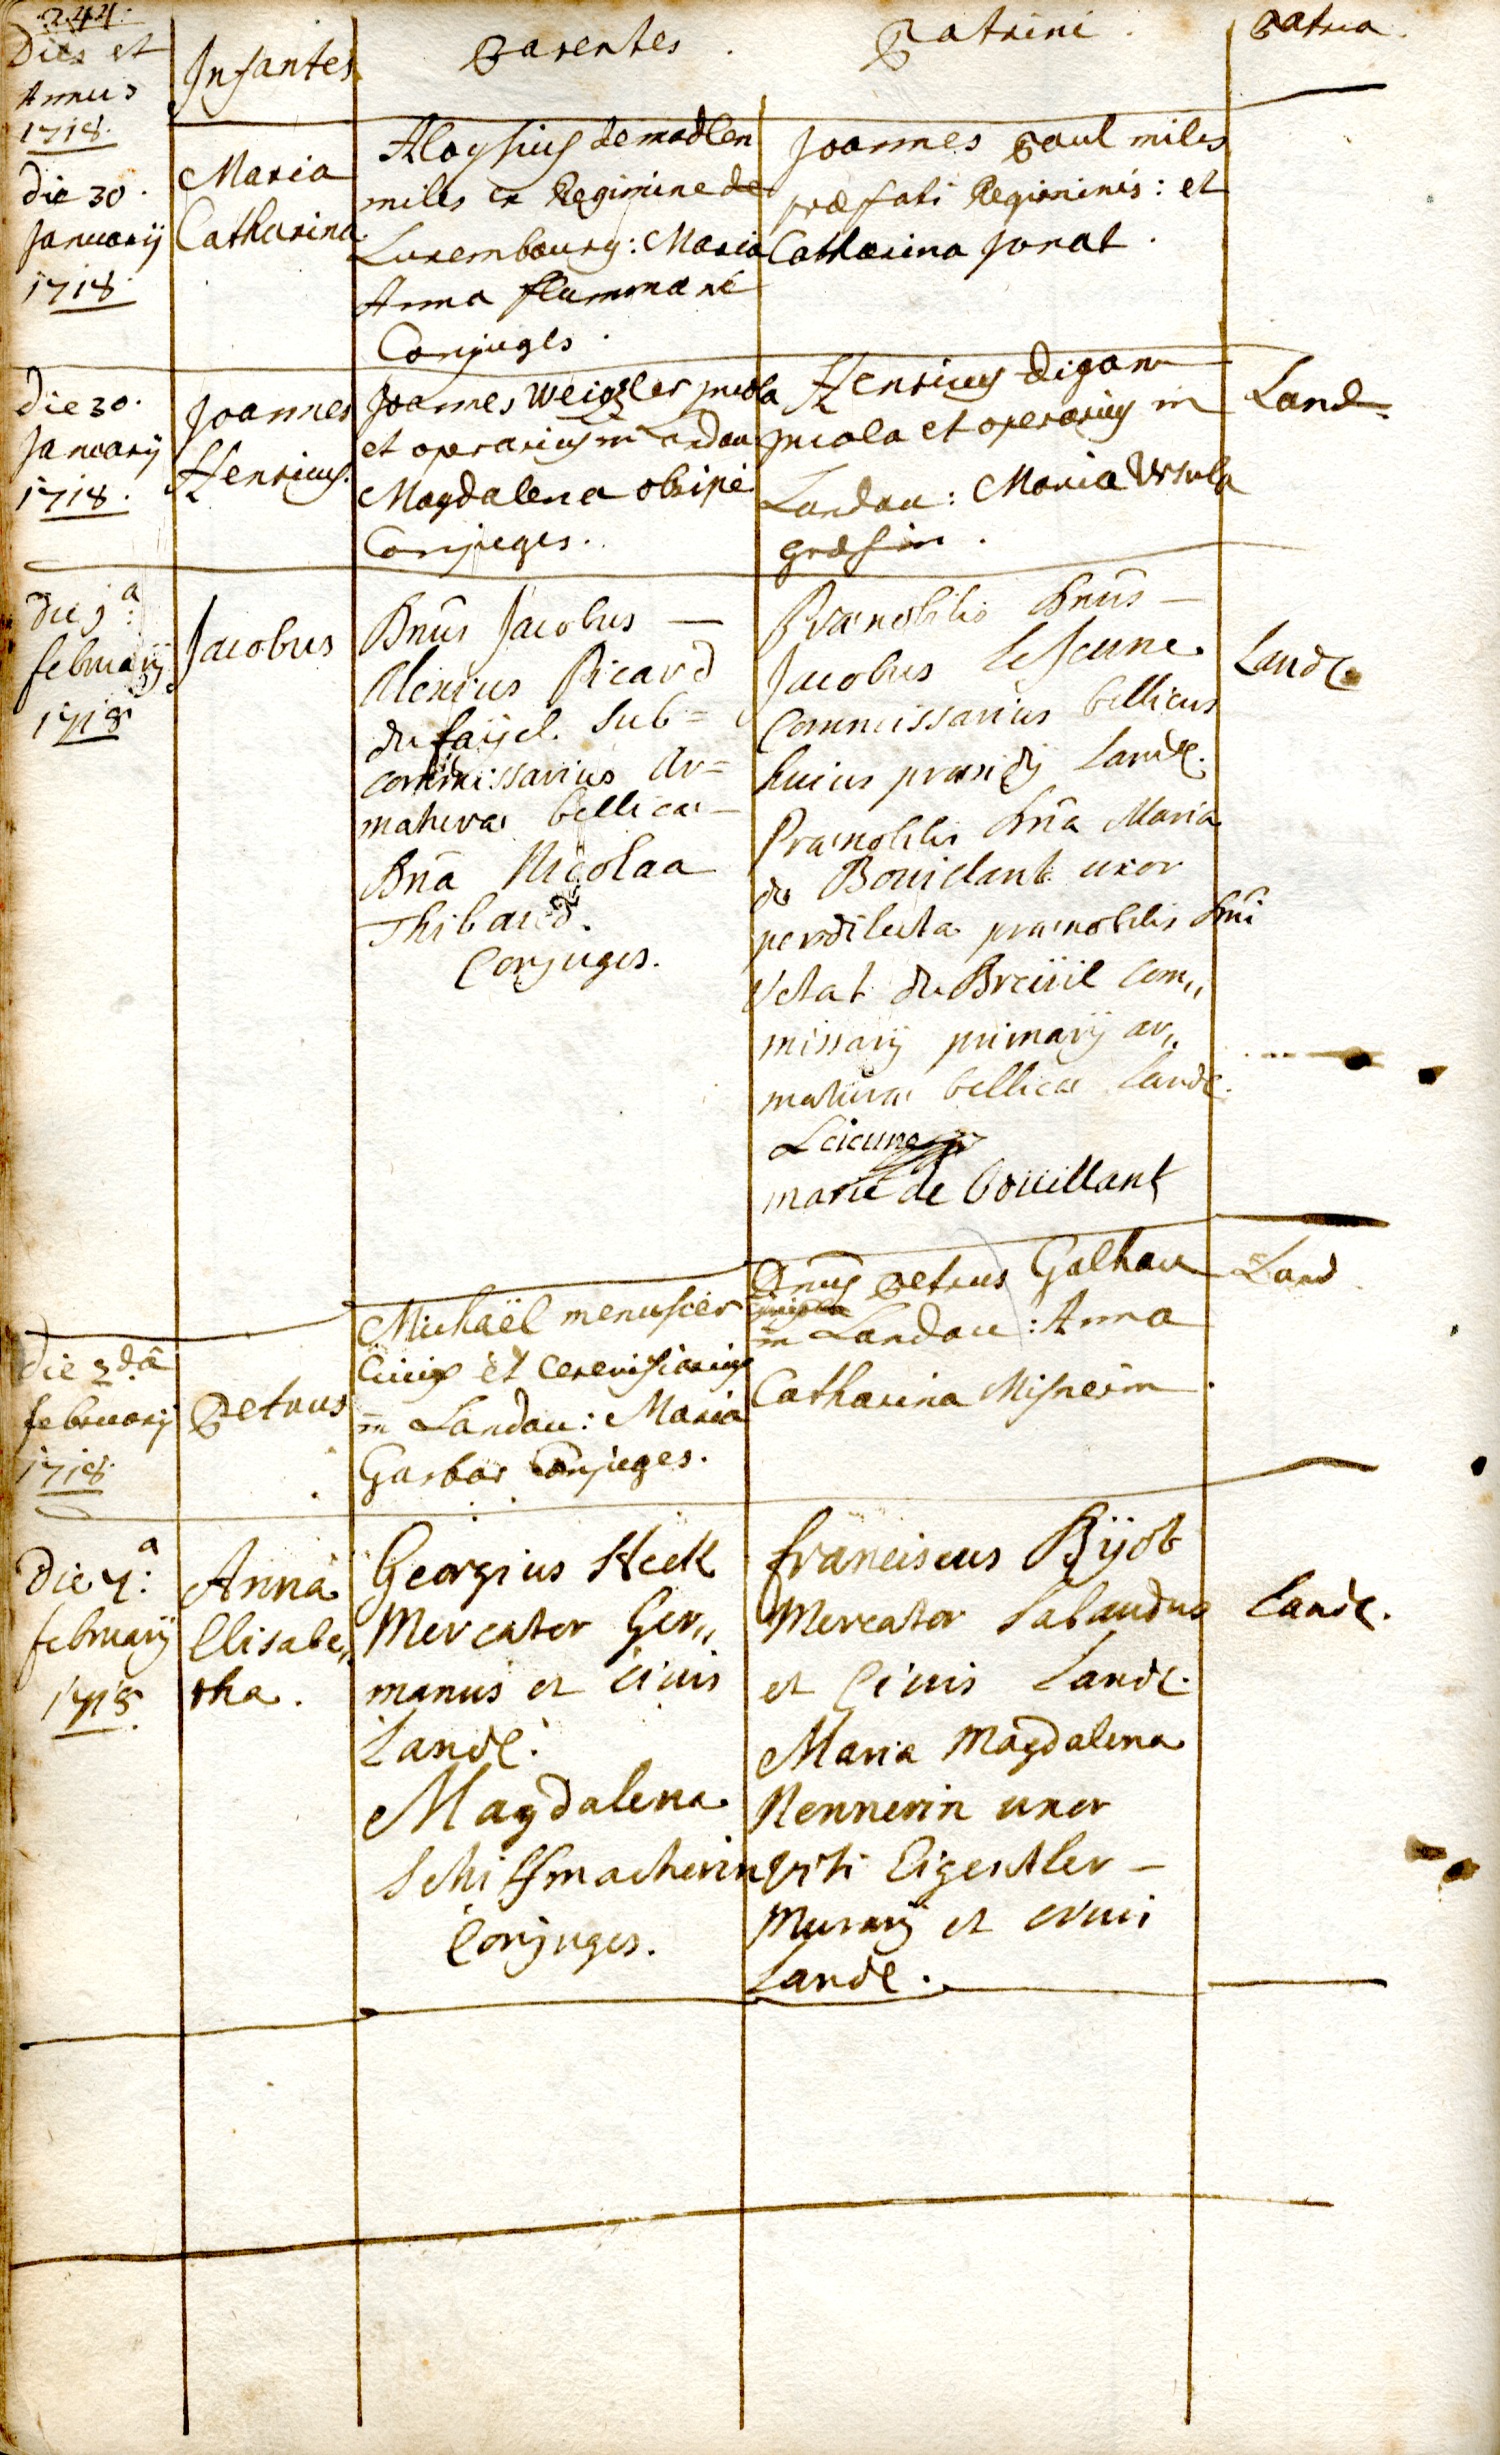 244.
Dies et
Annus
1718.
Infantes
Parentes.
Patrini.
Patria.
die 30.
Januarij
1718.
Maria
Catharina
Aloysius demadlen
miles ex Regimine de
Luxembourg: Maria
Anna flammane
Conjuges.
Joannes Paul miles
præfati Regiminis: et
Catharina Jonat.
die 30.
Januarij
1718.
Joannes
Henricus.
Joannes Weigsler incola
et operarius in Landau
Magdalena obripé
Conjuges.
Henricus Digan
incola et operarius in
Landau: Maria Ursula
Land.
die 1a:
februarij
1718
Jacobus
Dnûs Jacobus —
Alexius Picard
du faÿel. Sub=
commissarius Ar=
maturæ bellicæ —
Dnâ Nicolaa
Thibaud.
Conjuges.
Prænobilis Dnûs —
Jacobus LeJeune
Commissarius bellicus
huius præsidij Landæ.
Prænobilis Dnâ Maria
de Bouillant uxor
perdilecta prænobilis Dnî
Vetat du Breüil Com,,
missarij primarij ar,,
maturæ bellicæ Landæ.
Leieune
marie de bouillant
Landæ
die 2dâ
februarij
1718.
Petrus
Michaël menusier
Ciuis et cerevisiarius
in Landau: Maria
Garbar Conjuges.
Dnus Petrus Galhau
in Landau: Anna
Catharina Misnerin.
Land
Die 4a:
februarij
1718
Anna
Elisabe,,
tha.
Georgius Heck
Mercator Ger,,
manus et Ciuis
Landæ.
Magdalena
Schiffmacherin
Conjuges.
franciscus Bÿot
Mercator Sabaudus
et Ciuis Landæ.
Maria Magdalena
Rennerin uxor
Viti Eigentler —
Murarij et civis
Landæ.
Landæ.